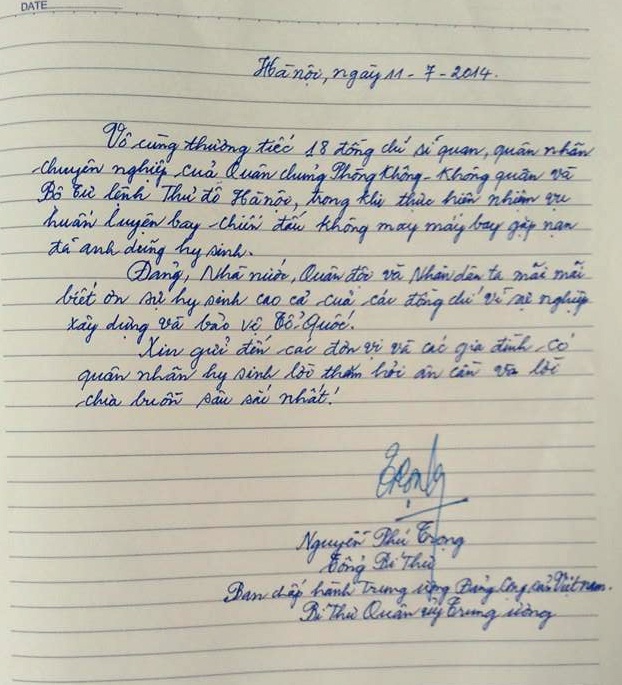 DATE
Hà nội, ngày 11-7-2014.
Vô cùng thương tiếc 18 đồng chí sĩ quan, quân nhân
chuyên nghiệp của Quân chủng Phòng Không - Không quân và
Bộ Tư lệnh Thủ đô Hà nội, trong khi thực hiện nhiệm vụ
huấn luyện bay chiến đấu không may máy bay gặp nạn
đã anh dũng hy sinh.
Đảng, Nhà nước, Quân đội và Nhân dân ta mãi mãi
biết ơn sự hy sinh cao cả của các đồng chí vì sự nghiệp
xây dựng và bảo vệ Tổ Quốc.
Xin gửi đến các đơn vị và các gia đình có
quân nhân hy sinh lời thăm hỏi ân cần và lời
chia buồn sâu sắc nhất!
Trọng
Nguyễn Phú Trọng
Tổng Bí Thư
Ban chấp hành Trung ương Đảng Cộng sản Việt nam.
Bí Thư Quân ủy Trung ương